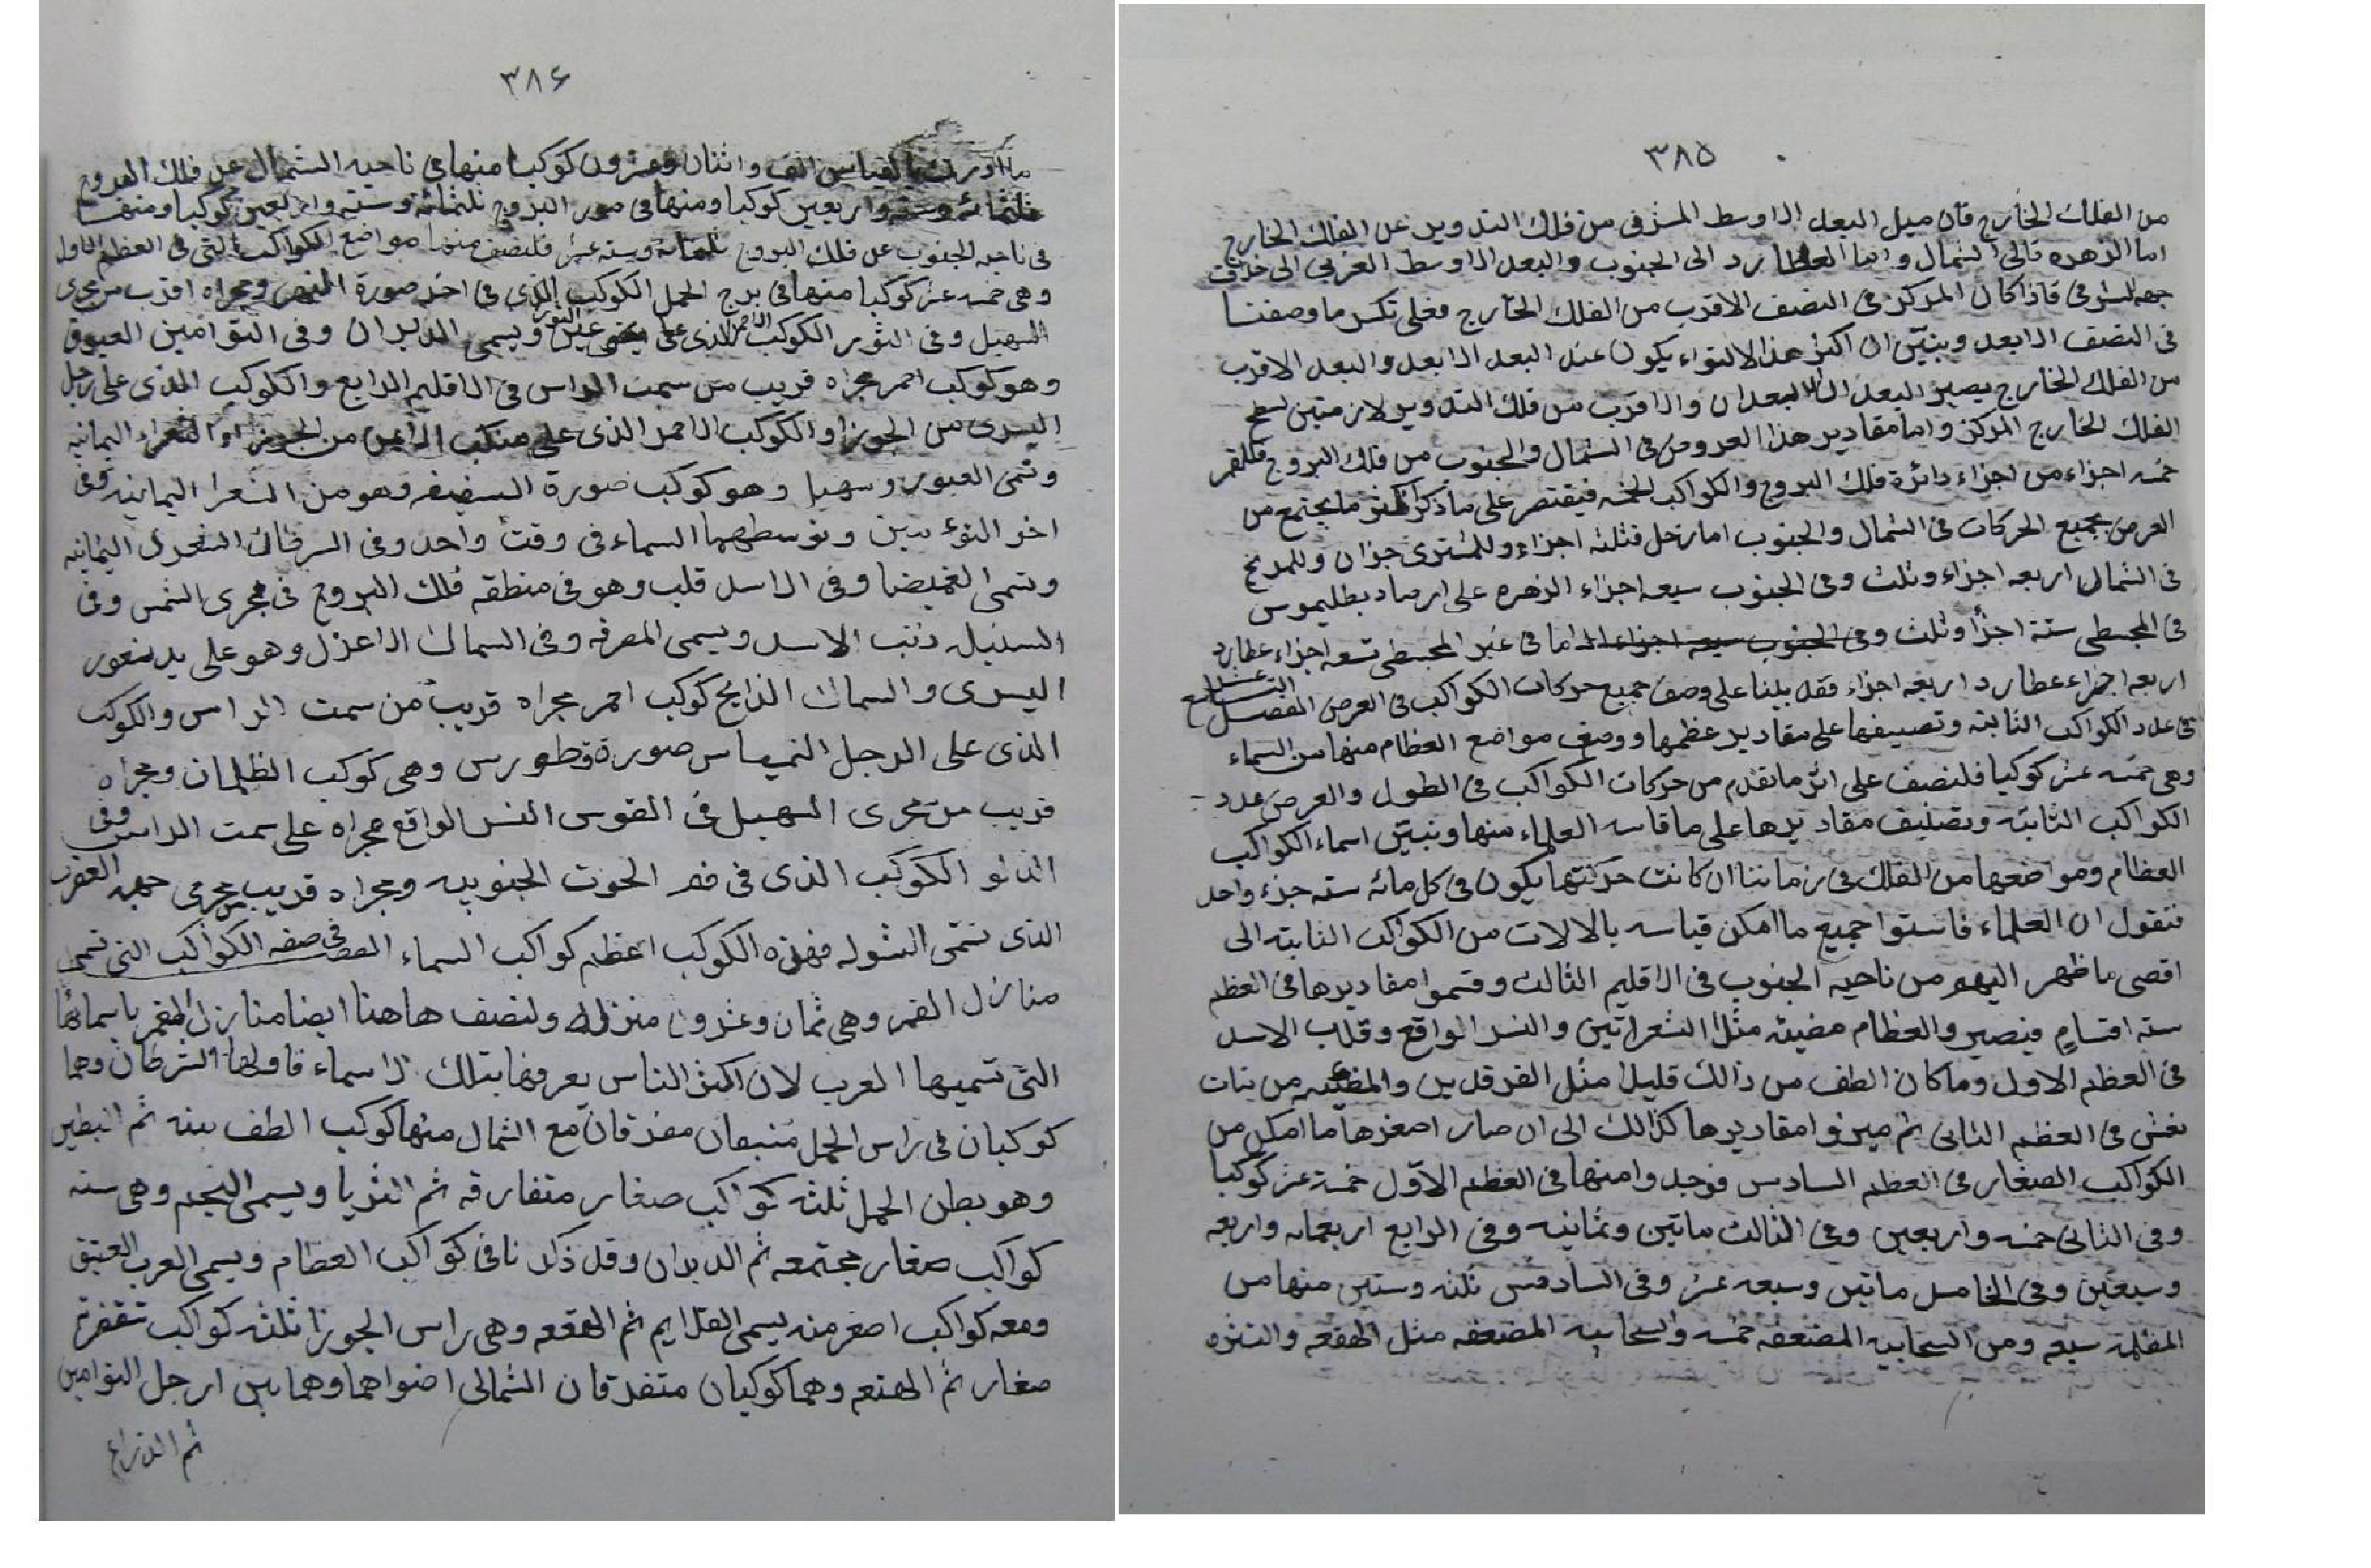 ٣٨٥
من الفلك الخارج فان ميل البعد الاوسط المشرقى من فلك التدوير عن الفلك الخارج
اما الزهره فالى الشمال واما العطارد الى الجنوب والبعد الاوسط الغربى الى خلاف
جهه الشرقى فاذا كان المركز فى النصف الاقرب من الفلك الخارج فعلى عكس ما وصفنا
فى النصف الابعد وبيّن ان اكثر هذا الالتواء يكون عند البعد الابعد والبعد الاقرب
من الفلك الخارج يصير البعد الابعدان والاقرب من فلك التدوير لازمتين لسطح
الفلك الخارج المركز واما مقادير هذا العروض فى الشمال والجنوب من فلك البروج فللقمر
خمسه اجزاء من اجزاء دائرة فلك البروج والكواكب الخمسه فيقتصر على ما ذكر ما يجتمع من
العرض بجميع الحركات فى الشمال والجنوب اما زحل فثلثه اجزاء وللمشترى جزان وللمريخ
فى الشمال اربعه اجزاء وثلث وفى الجنوب سبعه اجزاء الزهره على ارصاد بطليموس
فى المجسطى ستة اجزأ وثلث وفى الجنوب سبعه اجزاء اما فى غير المجسطى تسعه اجزاء عطارد
اربعه اجزاء عطارد اربعه اجزاء فقد بلينا على وصف جميع حركات الكواكب فى العرض الفصل التاسع عشر
فى عدد الكواكب الثابته وتصنيفها على مقادير عظمها ووصف مواضع العظام منها من السماء
وهى خمسه عشر كوكبا فلنصف على اثر ما تقدم من حركات الكواكب فى الطول والعرض عدد
الكواكب الثابته وتصنيف مقاديرها على ما قاسه العلماء منها ونبيّن اسماء الكواكب
العظام ومواضعها من الفلك فى زماننا ان كانت حركتها يكون فى كل مائه سته جزء واحد
فنقول ان العلماء فاستوا جميع ما امكن قياسه بالالات من الكواكب الثابته الى
اقصى ما ظهر اليهم من ناحيه الجنوب فى الاقليم الثالث وقسموا مقاديرها فى العظم
سته اقسام فيصير والعظام مضيئه مثل الشعراتين والنسر الواقع وقلب الاسد
فى العظم الاول وما كان الطف من ذالك قليلا مثل الفرقدين والمضيئه من بنات
نعش فى العظم الثانى ثم ميزوا مقاديرها كذالك الى ان صار اصغرها ما امكن من
الكواكب الصغار فى العظم السادس فوجدوا منها فى العظم الاوّل خمسة عشر كوكبا
وفى الثانى خمسه واربعين وفى الثالث ماتين وثمانيه وفى الرابع اربعمائه واربعه
وسبعين وفى الخامس ماتين وسبعه عشر وفى السادس ثلثه وستين منها من
المظلمه سبعه ومن السحابيه المضعفه خمسه والسحابيه المضعفه مثل الهقعه والنثره
٣٨۶
ما ادرك بالقياس الف واثنان وعشرون كوكبا منها فى ناحيه الشمال عن فلك البروج
ثلثمائه وسته واربعين كوكبا ومنها فى صور البروج ثلثمائة وسته واربعين كوكبا ومنها
فى ناحيه الجنوب عن فلك البروج ثلثمائة وسته عشر فلنصف منها مواضع الكواكب التى فى العظم الاول
وهى خمسه عشر كوكبا منها فى برج الحمل الكوكب الذى فى اخر صورة النهر ومجراه اقرب من مجرى
السهيل وفى الثور الكوكب الاحمر الذى على عين الثور ويسمى الدبران وفى التوامين العيوق
وهو كوكب احمر مجراه قريب من سمت الراس فى الاقليم الرابع والكوكب الذى على رجل
اليسرى من الجوزا والكوكب الاحمر الذى على منكب الايمن من الجوزاء والشعراء اليمانيه
وتسمى العبور وسهيل وهو كوكب صورة السفينه وهو من الشعرا اليمانيه وفى
اخر التوءمين وتوسطهما السماء فى وقت واحد وفى السرطان الشعرى اليمانيه
وتسمى الغميضا وفى الاسد قلب وهو فى منطقه فلك البروج فى مجرى الشمس وفى
السنبله ذنب الاسد ويسمى الصرفه وفى السماك الاعزل وهو على يد
اليسرى والسماك الذابح كوكب احمر مجراه قريب من سمت الراس والكوكب
الذى على الرجل صورة قطورس وهى كوكب الظلمان ومجراه
قريب من مجرى السهيل فى القوس النسر الواقع مجراه على سمت الراس وفى
الدلو الكوكب الذى فى فم الحوت الجنوبيه ومجراه قريب من مجرى حمه العقرب
الذى تسمّى الشوله فهذه الكوكب اعظم كواكب السماء الفصل فى صفه الكواكب التى تسمى
منازل القمر وهى ثمان وعشرون منزله ولنصف هاهنا ايضا منازل القمر باسمائها
التى تسميها العرب لان اكثر الناس يعرفها بتلك الاسماء فاولها الشرطان وهما
كوكبان فى راس الحمل مفترقان مع الشمال منها كوكب الطف منه ثم البطين
وهو بطن الحمل ثلثه كواكب صغار متفارقه ثم الثريا ويسمى النجم وهى سته
كواكب صغار مجتمعه ثم الدبران وقد ذكرنا فى كواكب العظام ويسمى العرب الفنيق
ومعه كواكب اصغر منه يسمى القلايص ثم الهقعه وهى راس الجوزا ثلثه كواكب
صغار ثم الهنعه وهما كوكبان متفرقان الشمالى اضواهما وهما بين ارجل التوامين
ثم الذراع